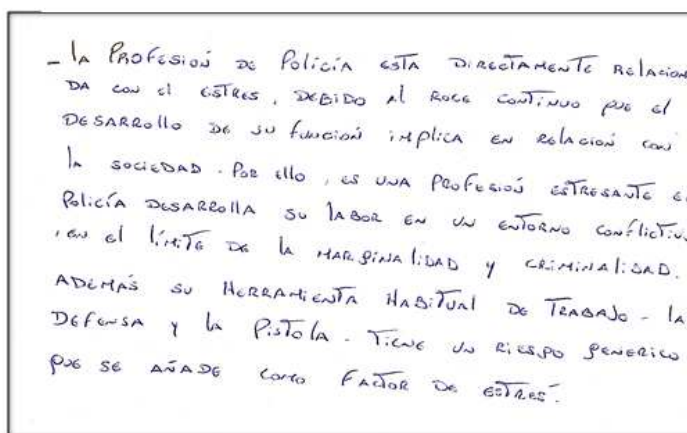 - LA PROFESIÓN DE POLICÍA ESTA DIRECTAMENTE RELACION
DA CON El ESTRES, DEBIDO Al ROCE CONTINUO QUE El
DESARROLLO DE SU FUNCIÓN IMPLICA EN RELACIÓN CON
lA SOCIEDAD. POR Ello, ES UNA PROFESIÓN ESTRESANTE El
POLICÍA DESARROLLA SU LABOR EN UN ENTORNO CONFLICTIVO
, EN El LÍMITE DE LA MARGINALIDAD Y CRIMINALIDAD.
ADEMÁS SU HERRAMIENTA HABITUAL DE TRABAJO - LA
DEFENSA Y LA PISTOLA - TIENE UN RIESGO GENERICO
QUE SE AÑADE COMO FACTOR DE ESTRÉS.